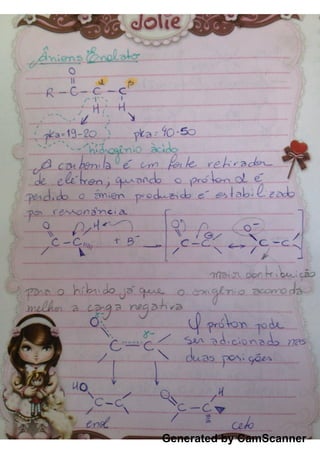 Jolie
Ânions Enolato
O
α β
R – C – C – C –
H H
pka = 19-20 pka = 40-50
hidrogênio ácido
A carbonila é um forte retirador
de elétron, quando o próton α é
perdido o ânion produzido é estabilizado
por ressonância.
O H O O-
C – C + B- → C – C ↔ C – C
maior contribuição
para o híbrido já que o oxigênio acomoda
melhor a carga negativa
O próton pode
C C ser adicionado nas
duas posições
HO O H
C – C C – C
enol ceto
Generated by CamScanner